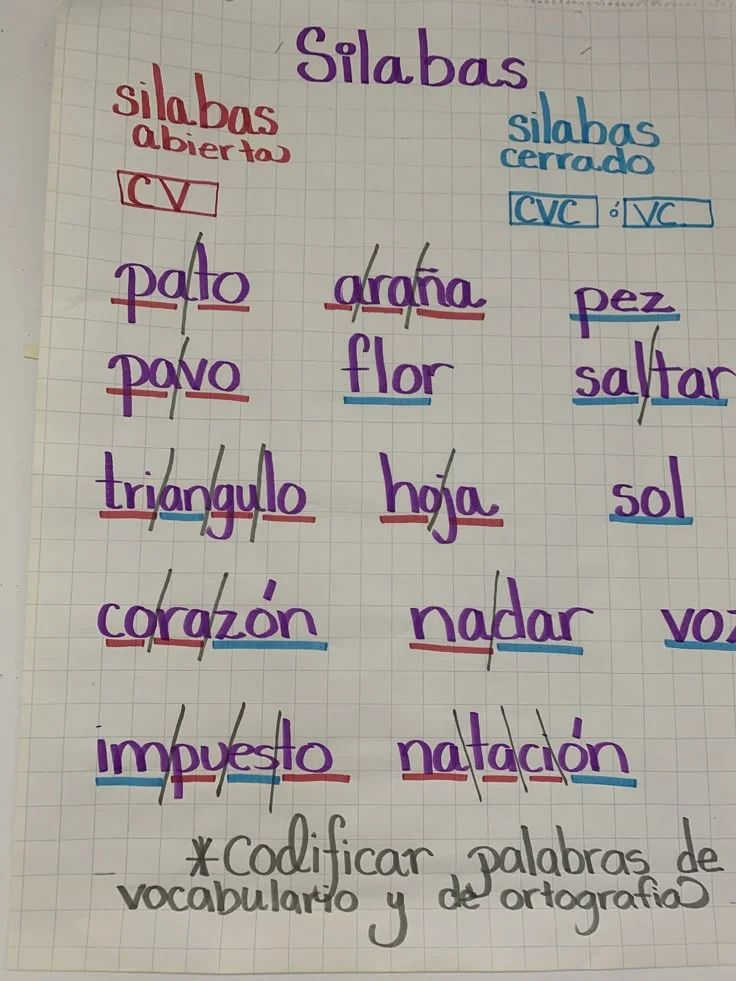 Silabas
silabas
abiertas
CV
silabas
cerrado
CVC ó VC
pa/to a/ra/ña pez
pa/vo flor sal/tar
tri/an/gu/lo ho/ja sol
co/ra/zón na/dar voz
im/pu/es/to na/ta/ci/ón
*Codificar palabras de
vocabulario y de ortografia